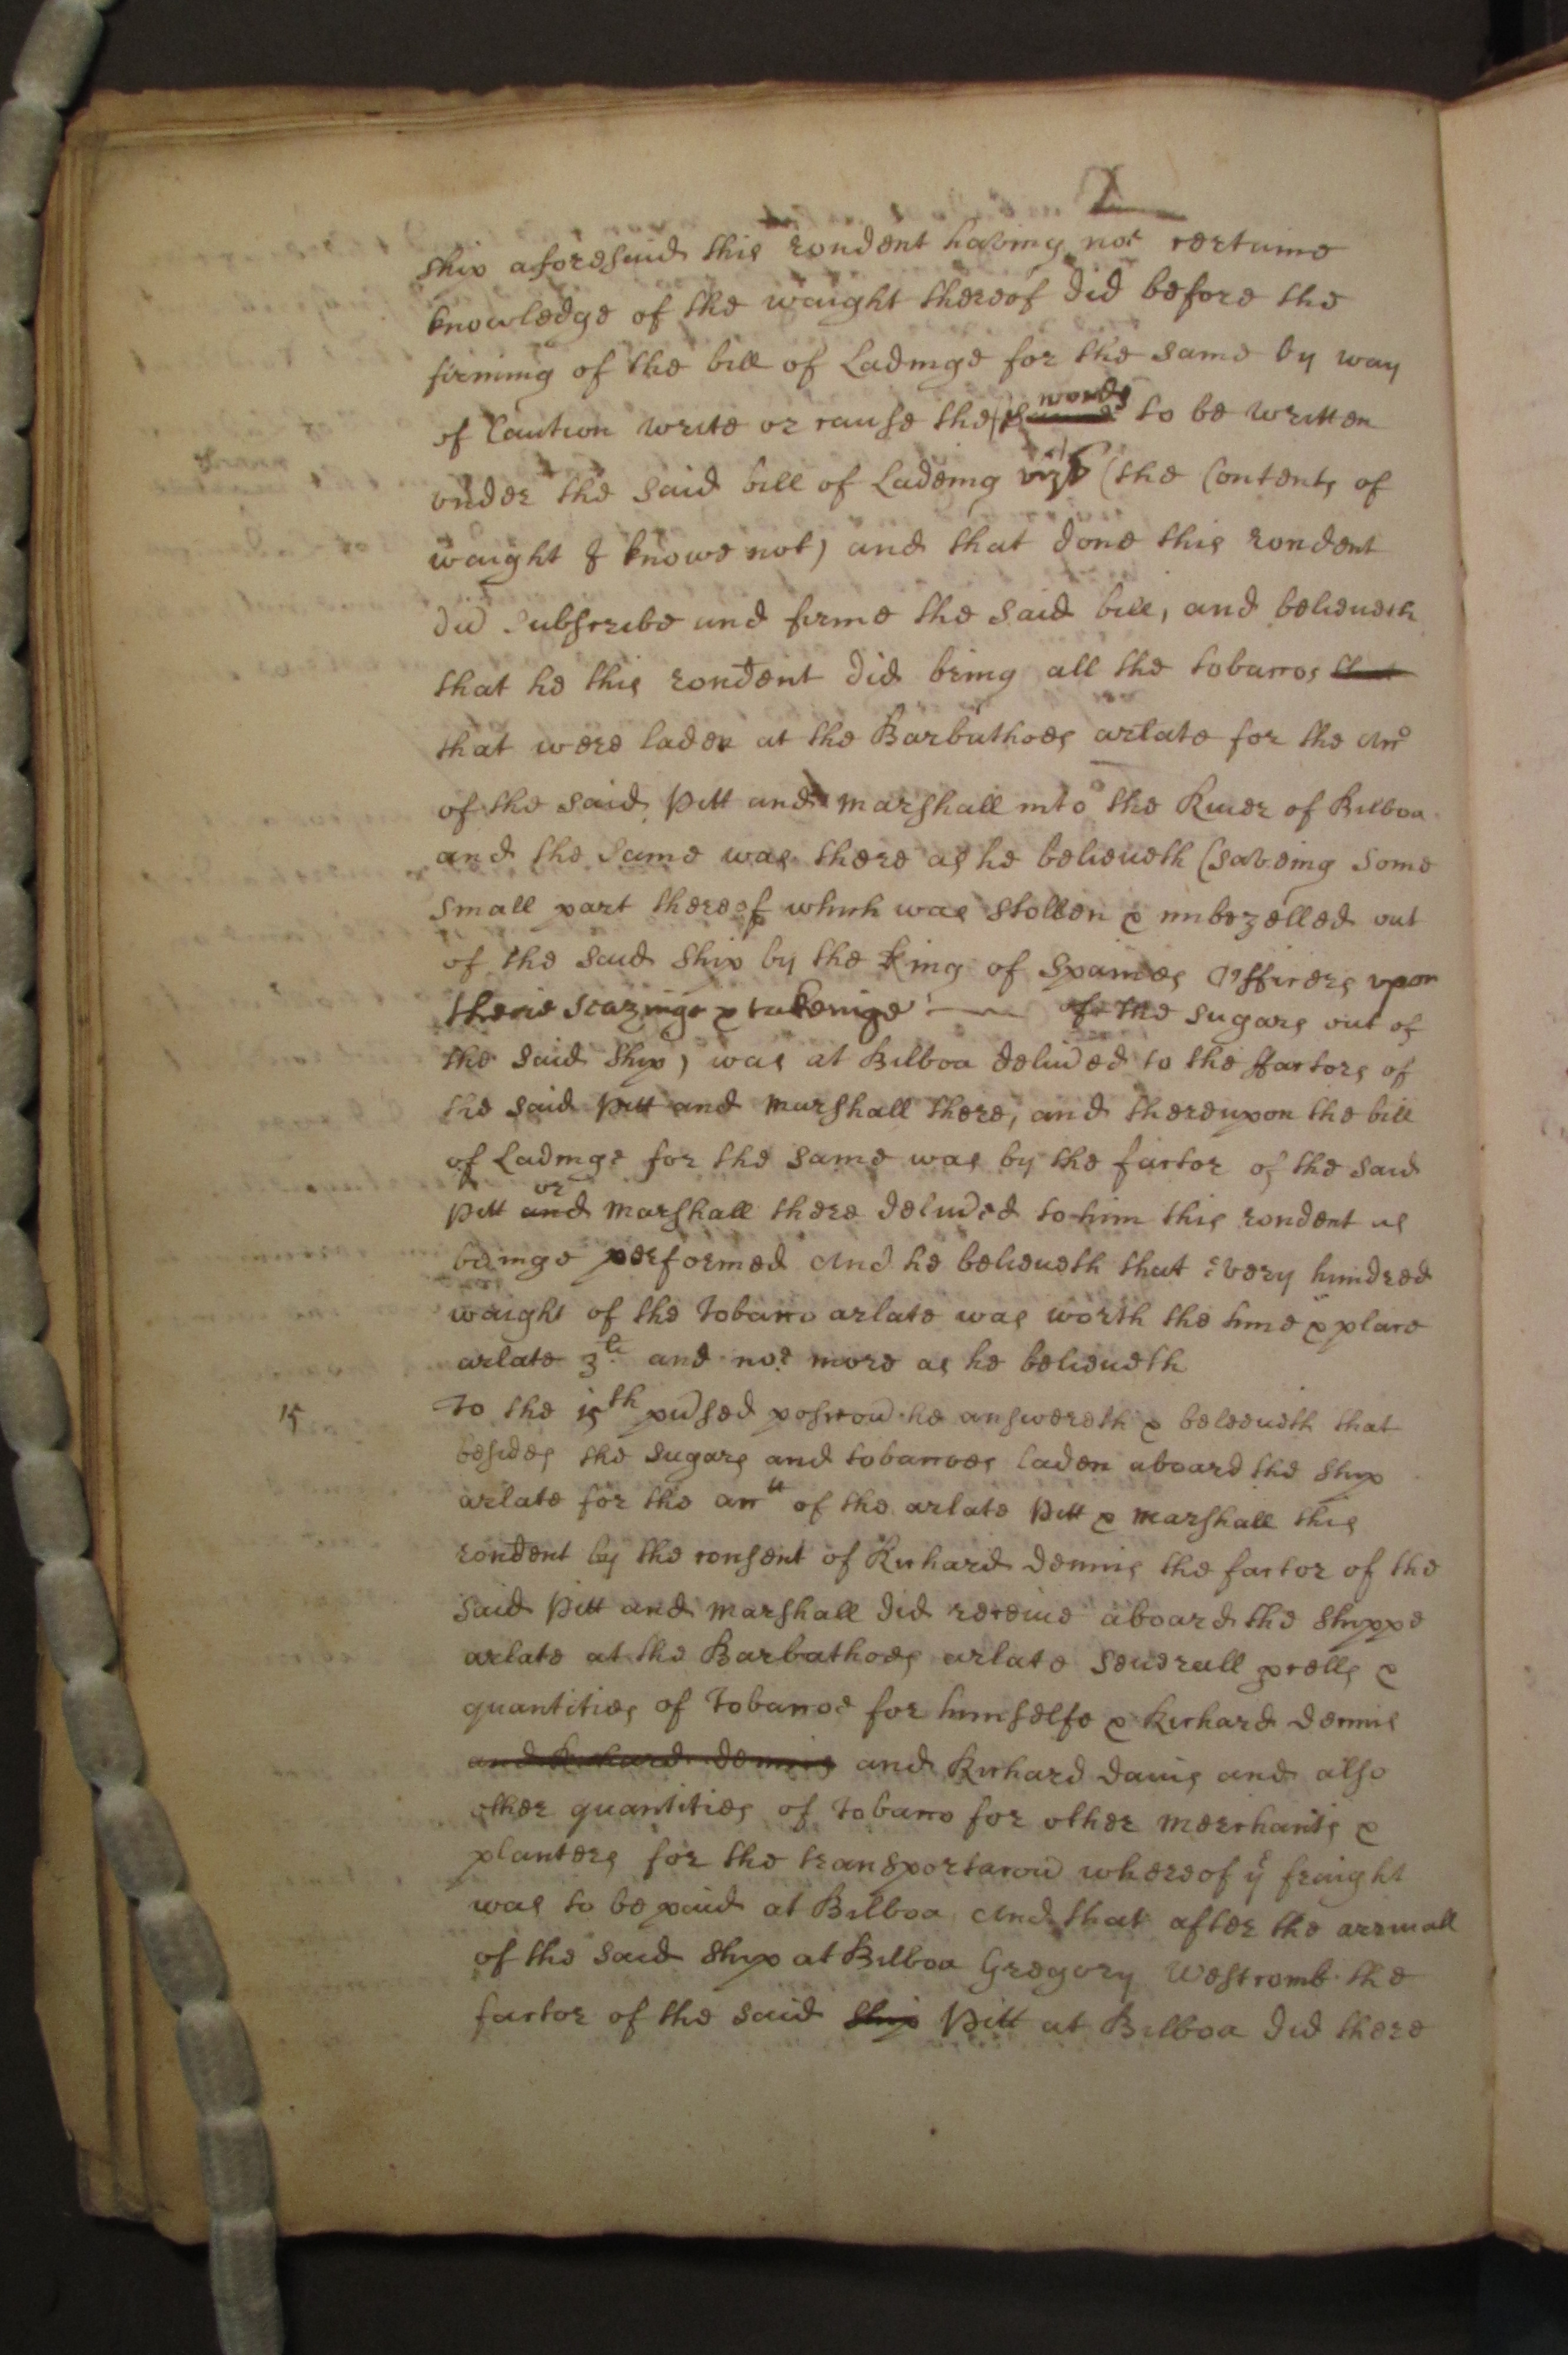 ship aforesaid this rondent haveing not certaine
knowledge of the waight thereof did before the
firming of the bill of Ladinge for the same by way
of Caution write or cause the words to be written
under the said bill of Ladeing vizt (the Contents of
waight I knowe not) and that done this rondent
did Subscribe and firme the said bill, and believeth
that he this rondent did bring all the tobaccos that
that were laden at the Barbathoes arlate for the Acco
of the said Pitt and Marshall into the River of Bilboa
and the same was there as he believeth (saveing some
small part thereof which was stollen & imbezelled out
of the said ship by the King of Spaines Officers upon
theire seazinge & takeinge of the sugars out of
the said ship) was at Bilboa delived to the ffactors of
the said Pitt and Marshall there, and thereupon the bill
of Ladinge for the same was by the factor of the said
Pitt and or Marshall there delived to him this rondent as
beinge performed And he believeth that every hundred
waight of the tobacco arlate was worth the time & place
arlate 3li and noe more as he believeth
15 To the 15th pused posicon he answereth & beleeveth that
besides the sugars and tobaccoes laden aboard the ship
arlate for the acctt of the arlate Pitt & Marshall this
rondent by the consent of Richard Dennis the factor of the
said Pitt and Marshall did receive aboard the shippe
arlate at the Barbathoes arlate severall prcells &
quantities of tobaccoe for himselfe & Richard Dennis
and Richard Dennis and Richard Davis and also
other quantities of tobacco for other merchants &
planters for the transportacon whereof ye fraight
was to be paid at Bilboa And that after the arrivall
of the said ship at Bilboa Gregory Westcomb the
factor of the said ship Pitt at Bilboa did there